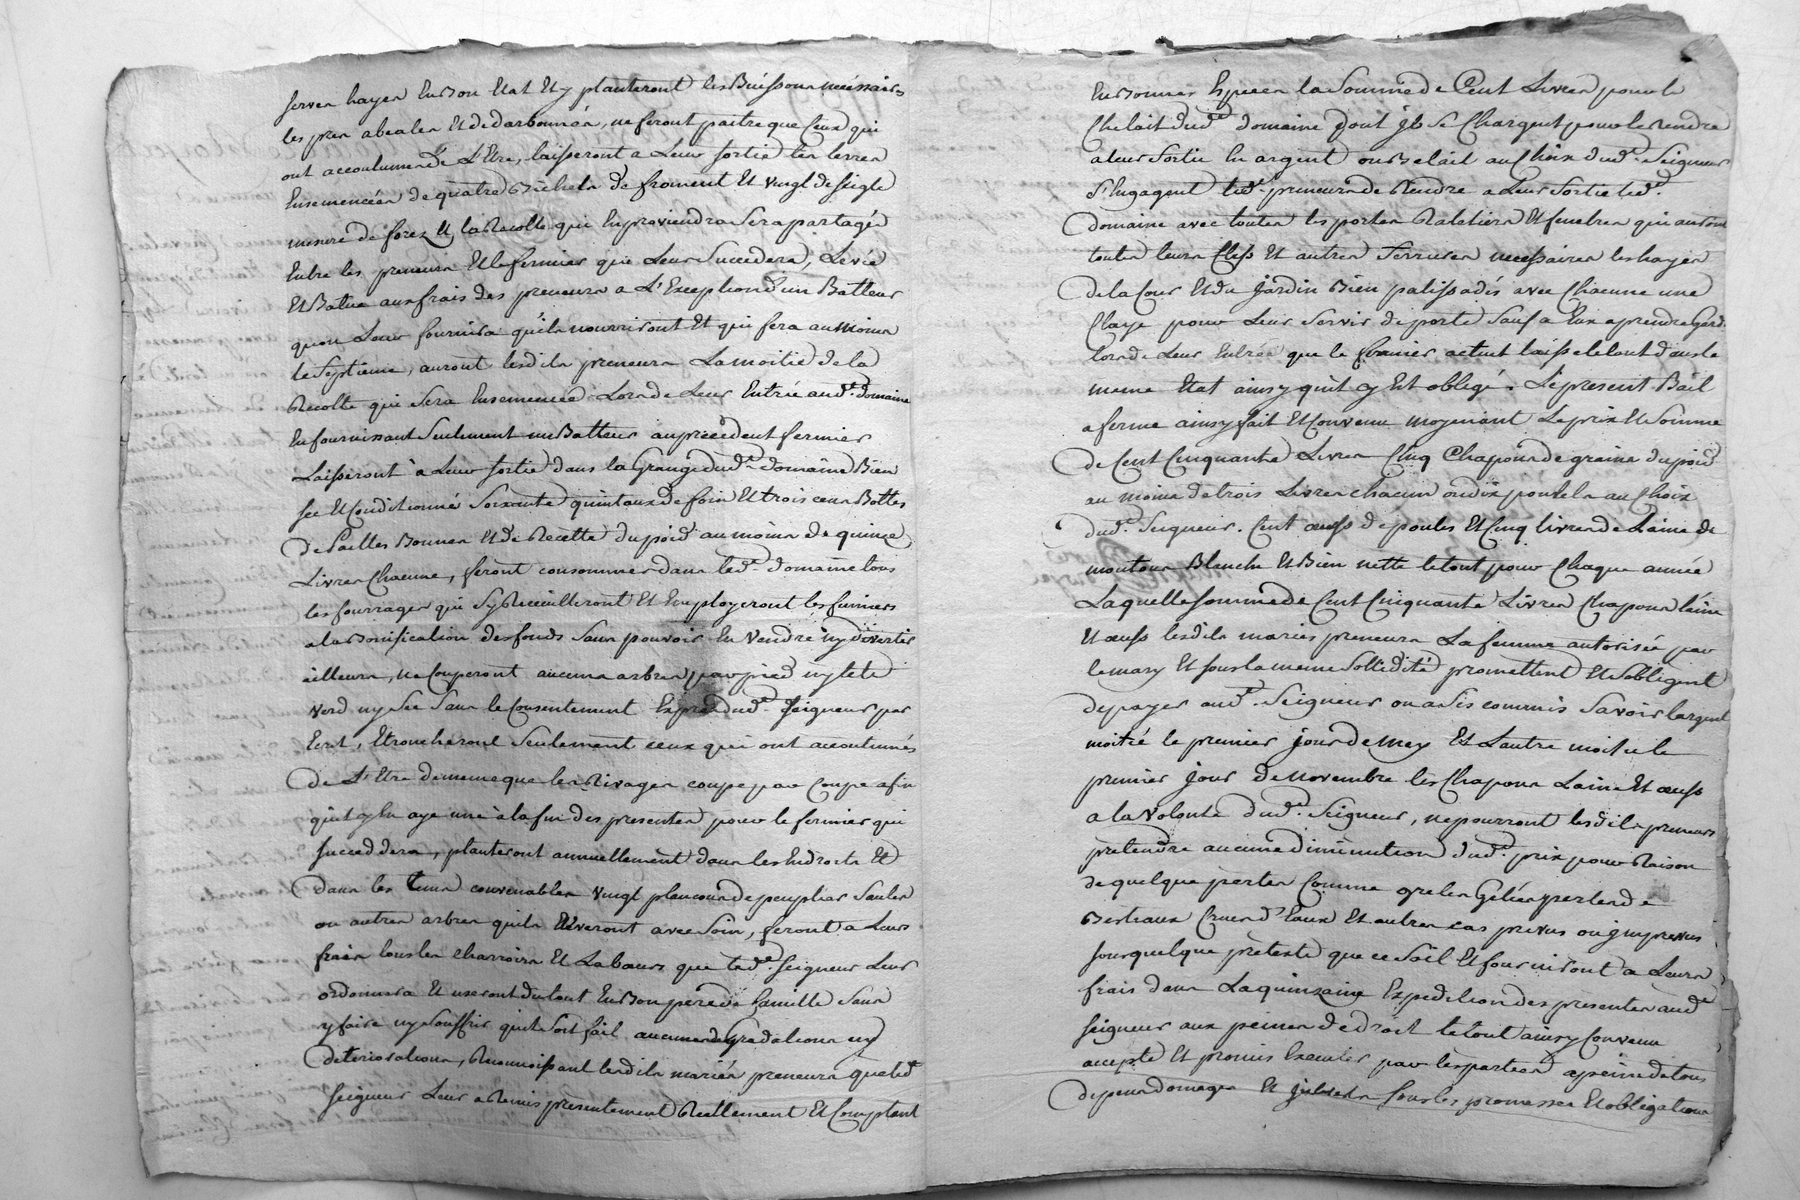 server hayer En Bon Etat Et y planteront les Buissons nécéssairs
les prer abealer Et dedarbonnér, ne feront paitre que Ceux qui
ont accoutumer de L'Etre, laisseront a Leur sortie les terres
Ensemencéer de quatre Bichets de froment Et vingt de seigle
mesure de forez Et la Recolte qui En proviendra Sera partagér
Entre les preneurs Et le fermier qui Leur Succedera, Levée
Et Batue aux frais des preneurs a L'Exception d'un Batteur
quon Leur fournira qu'ils nourriront Et qui sera au moins
le septieme, auront lesdits preneurs La moitié de la
Recolte qui Sera Ensemencée Lors de Leur Entrée aud.t domaine
En fournissant Seulement un Batteur au précédent fermier
Laisseront a Leur sortie dans la Grange dud.t domaine Bien
sec Et Conditionné Soixante quintaux de foin Et trois cens Bottes
de Pailles Bonnes Et de Recette du poid au moins de quinze
Livres Chacune, feront consommer dans led.t domaine tous
les fourrages qui sy Receuilleront Et Employeront les fumiers
a la Bonification des fonds Sans pouvoir En vendre ny divertir
ailleurs, ne Couperont aucuns arbres par pied ny tete
verd ny sec Sans le Consentement Exprés dud.t Seigneur par
Ecrit, Etroncheront Seulement ceux qui ont accoutumés
de L'Etre de meme que les Rivages coupe par Coupe afin
quil y En aye une a la fin des presentes pour le fermier qui
succeddera, planteront annuellement dans les Endroits Et
dans les tems convenables vingt plançons de peuplier Saules
ou autres arbres quils Eleveront avec Soin, feront a Leurs
frais tous les charrois Et Labeurs que led.t Seigneur Leur
ordonnera Et useront du tout En Bon pere de famille Sans
y faire ny Souffrir quil Soit fait aucunes degradations ny
deteriorations, Reconnoissant lesdits mariés preneurs que led.t
Seigneur Leur a Remis presentement Réellement Et Comptant
En Bonnes Especes la Somme de Cent Livres pour le
Chelait dud.t domaine dont ils Se Chargent pour le rendre
a leur Sortie En argent ou Belait au Choix dud.t Seigneur
S'Engagent led.t preneurs de Rendre a Leur Sortie led.t
domaine avec toutes les portes Rateliers Et fenetres qui auront
toutes leurs Clefs Et autres ferrures necessaires les hayes
de la Cour Et du Jardin Bien palissadés avec Chacune une
Claye pour Leur Servir de porte Sauf a Eux a prendre Garde
lors de Leur Entrée que le fermier actuel laisse le tout dans le
meme Etat ainsy quil y Est obligé. Le present Bail
a ferme ainsy fait Et Convenu moyenant Le prix Et Somme
de Cent Cinquante Livres Cinq Chapons de graine du poid
au moins de trois Livres chacun ou dix poulets au Choix
dud.t Seigneur. Cent œufs de poules Et Cinq livres de Laine de
moutons Blanche Et Bien nette le tout pour Chaque année
Laquelle Somme de Cent Cinquante Livres Chapons laine
Et œufs lesdits mariés preneurs La femme autorisée par
le mary Et sous la meme Sollidité promettent Et Sobligent
de payer aud.t Seigneur ou a Ses commis Savoir largent
moitié le premier Jour de may Et Lautre moitié le
premier Jour de Novembre les Chapons Laine Et œufs
a la Volonté dud.t Seigneur, ne pourront lesdits preneurs
pretendre aucune diminution dud.t prix pour Raison
de quelque pertes Comme greles Gelées pertes de
Bestiaux Crues d'Eaux Et autres cas prevus ou jmprevus
sous quelque pretexte que ce Soit Et fourniront a Leurs
frais dans La quinzaine Expedition des presentes aud.t
Seigneur aux peines de droit le tout ainsy Convenu
accepté Et promis Executer par les parties a peine de tous
depens domages Et Jnterets Sous les promesses Et obligations